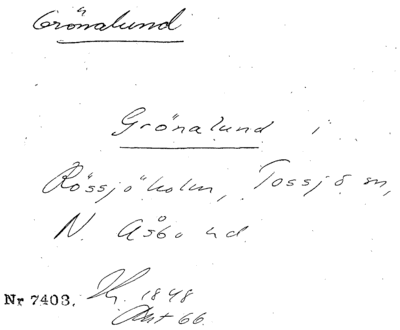 Grönalund
Grönalund i
Rössjöholm, Tossjö sn,
N. Åsbo hd.
Nr 7403. 1848
Akt 66.